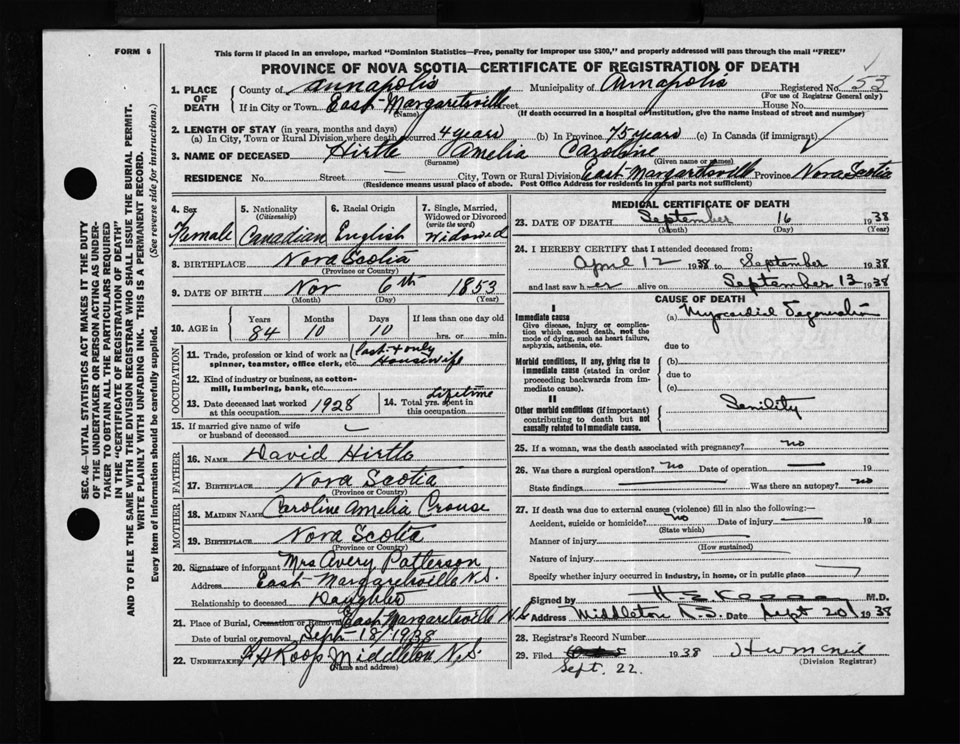 FORM 6
This form if placed in an envelope, marked "Dominion Statistics—Free, penalty for improper use $300," and properly addressed will pass through the mail "FREE"
PROVINCE OF NOVA SCOTIA—CERTIFICATE OF REGISTRATION OF DEATH
1. PLACE OF DEATH County of Annapolis Municipality of Annapolis Registered No. 153
(For use of Registrar General only)
If in City or Town East Margaretsville Street House No.
(Name) (If death occurred in a hospital or institution, give the name instead of street and number)
2. LENGTH OF STAY (in years, months and days)
(a) In City, Town or Rural Division where death occurred 4 years (b) In Province 75 years (c) In Canada (if immigrant)
3. NAME OF DECEASED Hirtle Amelia Caroline
(Surname) (Given name or names)
RESIDENCE No. Street — City, Town or Rural Division East Margaretsville Province Nova Scotia
(Residence means usual place of abode. Post Office Address for residents in rural parts not sufficient)
4. Sex Female
5. Nationality (Citizenship) Canadian
6. Racial Origin English
7. Single, Married, Widowed or Divorced (write the word) Widowed
8. BIRTHPLACE Nova Scotia
(Province or Country)
9. DATE OF BIRTH Nov 6th 1853
(Month) (Day) (Year)
10. AGE in Years Months Days If less than one day old
84 10 10 hrs. or min.
OCCUPATION
11. Trade, profession or kind of work as spinner, teamster, office clerk, etc. Past & only Housewife
12. Kind of industry or business, as cotton-mill, lumbering, bank, etc.
13. Date deceased last worked at this occupation 1928
14. Total yrs. spent in this occupation Lifetime
15. If married give name of wife or husband of deceased
FATHER
16. NAME David Hirtle
17. BIRTHPLACE Nova Scotia
(Province or Country)
MOTHER
18. MAIDEN NAME Caroline Amelia Crouse
19. BIRTHPLACE Nova Scotia
(Province or Country)
20. Signature of informant Mrs Avery Patterson
Address East Margaretsville N.S.
Relationship to deceased Daughter
21. Place of Burial, Cremation or Removal East Margaretsville N.S.
Date of burial or removal Sept-18/1938
22. UNDERTAKER Roop Middleton N.S.
(Name and address)
MEDICAL CERTIFICATE OF DEATH
23. DATE OF DEATH September 16 1938
(Month) (Day) (Year)
24. I HEREBY CERTIFY that I attended deceased from:
April 12 1938 to September 1938
and last saw her alive on September 13 1938
CAUSE OF DEATH
I
Immediate cause
Give disease, injury or complication which caused death, not the mode of dying, such as heart failure, asphyxia, asthenia, etc.
(a) Myocardial Degeneration
due to
Morbid conditions, if any, giving rise to immediate cause (stated in order proceeding backwards from immediate cause).
(b)
due to
(c)
II
Other morbid conditions (if important) contributing to death but not causally related to immediate cause.
Senility
25. If a woman, was the death associated with pregnancy? no
26. Was there a surgical operation? no Date of operation — 19
State findings Was there an autopsy? no
27. If death was due to external causes (violence) fill in also the following:—
Accident, suicide or homicide? no Date of injury — 19
(State which)
Manner of injury
(How sustained)
Nature of injury
Specify whether injury occurred in industry, in home, or in public place
Signed by M.D.
Address Middleton N.S. Date Sept 20 1938
28. Registrar's Record Number
29. Filed 1938 H W McNeil
Sept. 22. (Division Registrar)
SEC. 46—VITAL STATISTICS ACT MAKES IT THE DUTY
OF THE UNDERTAKER OR PERSON ACTING AS UNDER-
TAKER TO OBTAIN ALL THE PARTICULARS REQUIRED
IN THE "CERTIFICATE OF REGISTRATION OF DEATH"
AND TO FILE THE SAME WITH THE DIVISION REGISTRAR WHO SHALL ISSUE THE BURIAL PERMIT.
WRITE PLAINLY WITH UNFADING INK. THIS IS A PERMANENT RECORD.
Every item of information should be carefully supplied. (See reverse side for instructions.)